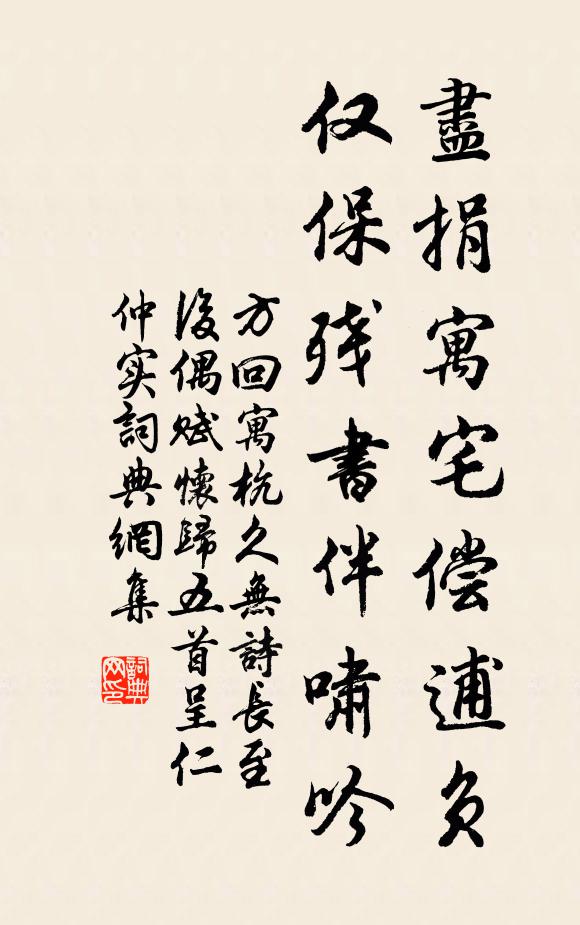 盡捐寓宅偿逋负
仅保残書伴嘯吟
方回寓杭久無詩長至
後偶赋懷歸五首呈仁
仲实詞典網集
詞典网印